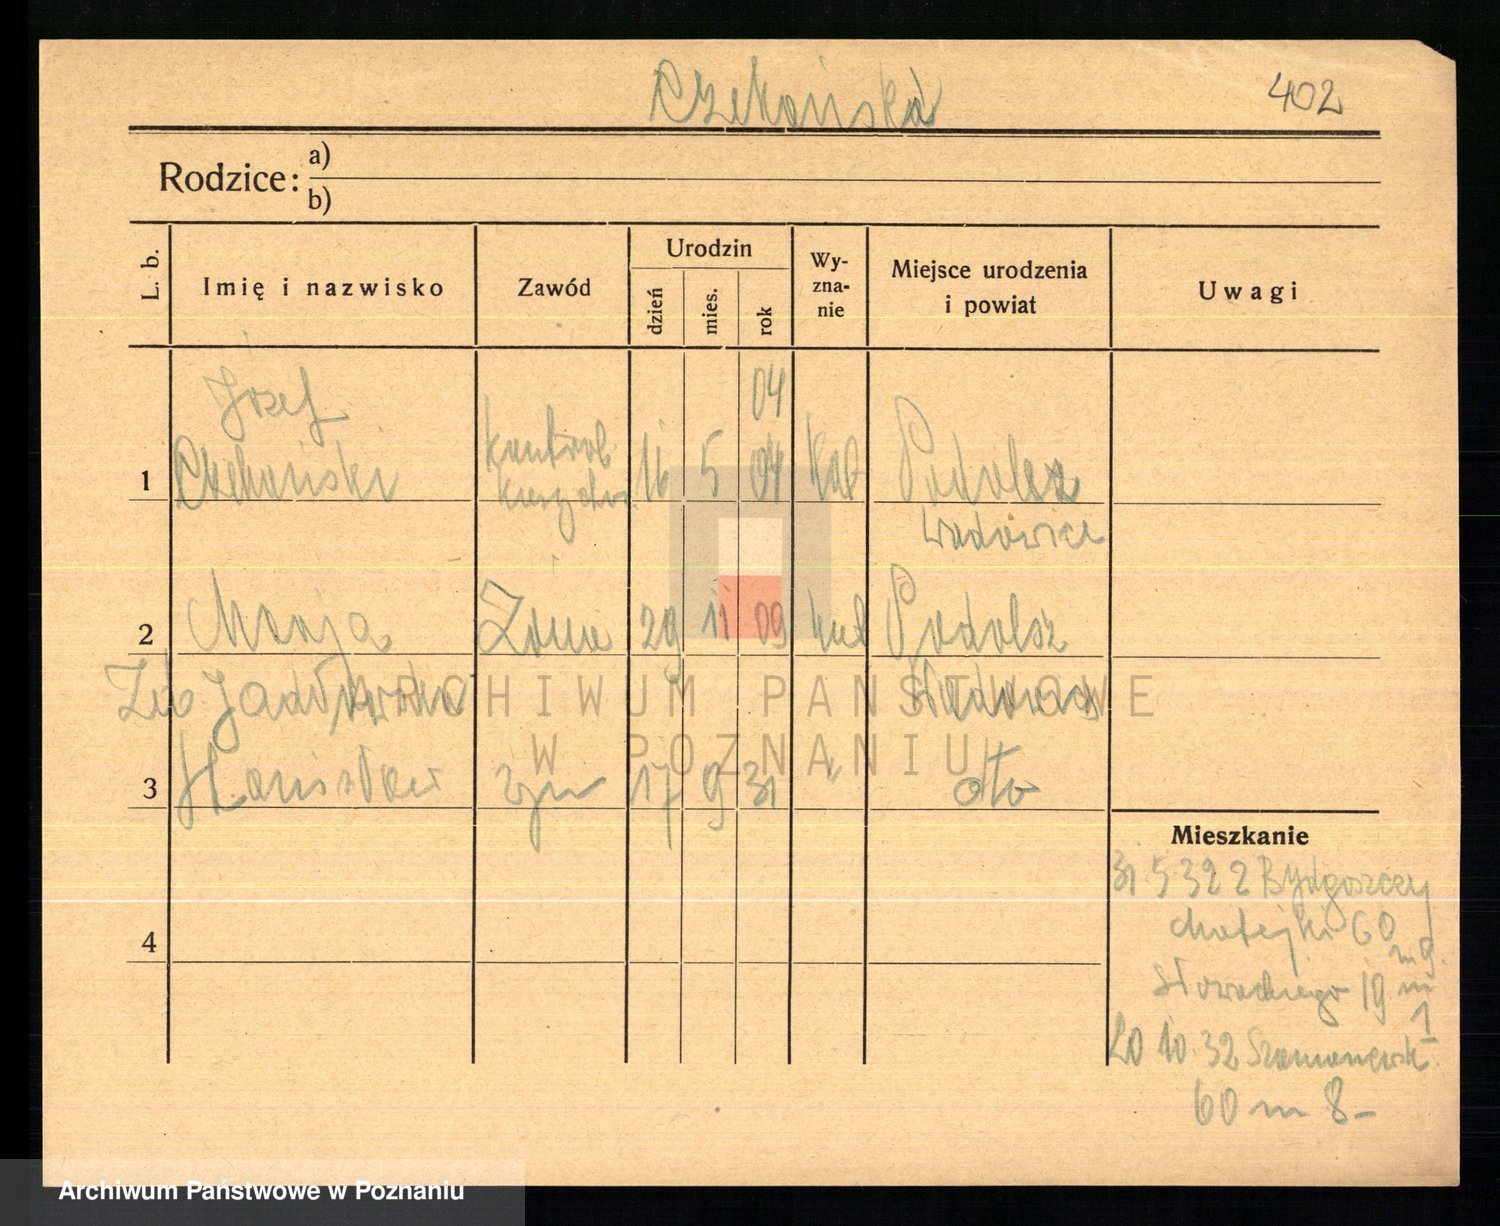 Czekański
402
Rodzice:
a)
b)
L. b.
Imię i nazwisko
Zawód
Urodzin
dzień
mies.
rok
Wy-
zna-
nie
Miejsce urodzenia
i powiat
Uwagi
04
Józef
1 Czekański kontrol 16 5 04 Kat Podolsz
Wadowice
2 Maria Żona 29 11 09 kat Podolsz
Wadowice
3 Stanisław syn 17 9 31 " dto
4
Mieszkanie
31.5.32 z Bydgoszczy
Matejki 60
m 9.
Słowackiego 19 m
1
20 10 32 Szamarzewsk.
60 m 8-
ARCHIWUM PAŃSTWOWE
W POZNANIU
Archiwum Państwowe w Poznaniu